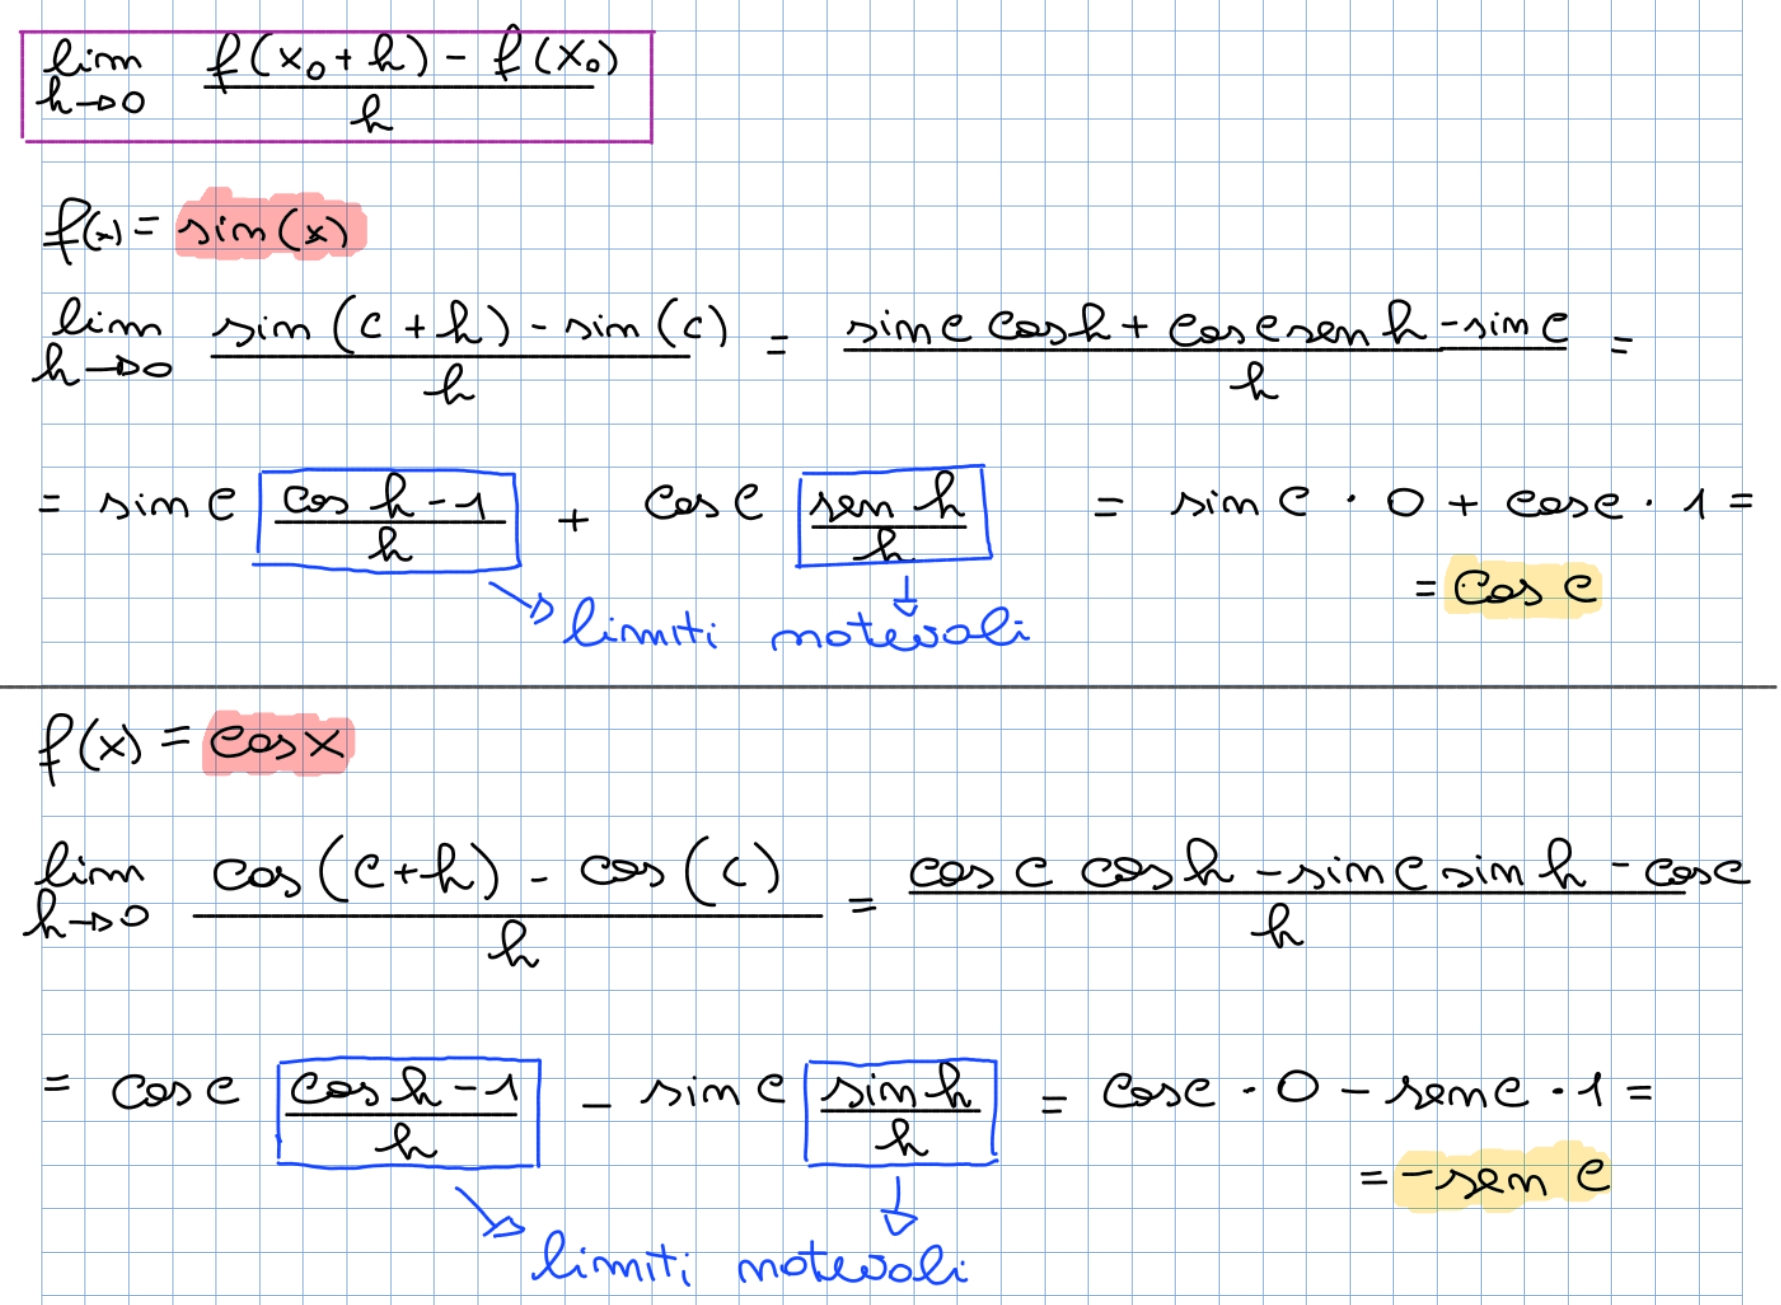 lim h→0 f(x₀+h) - f(x₀) / h
f(x) = sin(x)
lim h→0 sin(c+h) - sin(c) / h = sin c cos h + cos c sen h - sin c / h =
= sin c cos h - 1 / h + cos c sen h / h = sin c · 0 + cos c · 1 =
= cos c
limiti notevoli
f(x) = cos x
lim h→0 cos(c+h) - cos(c) / h = cos c cos h - sin c sin h - cos c / h
= cos c cos h - 1 / h - sin c sin h / h = cos c · 0 - sen c · 1 =
= - sen c
limiti notevoli